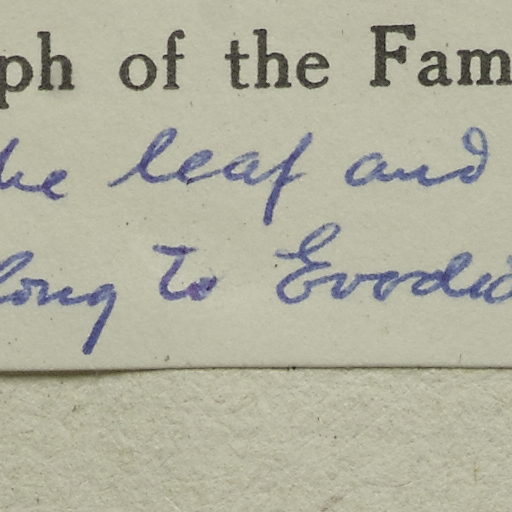 ph of the Fam
he leaf and
long to Evodia